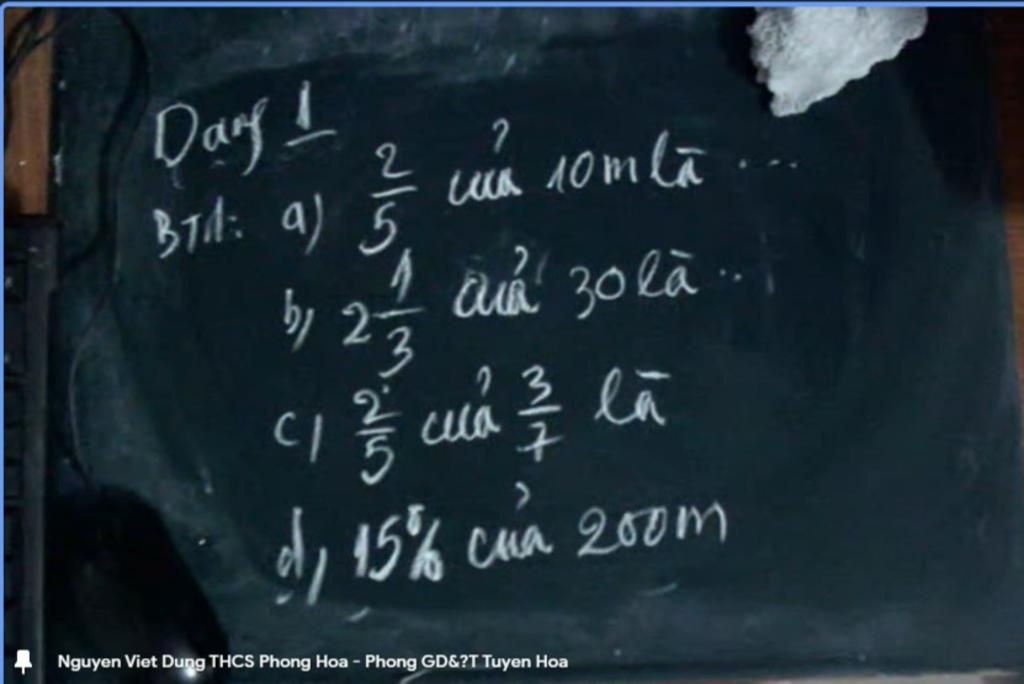 Dạng 1
BT1: a) 2/5 của 10m là ...
b, 2 1/3 của 30 là ..
c, 2/5 của 3/7 là
d, 15% của 200m
Nguyen Viet Dung THCS Phong Hoa - Phong GD&?T Tuyen Hoa